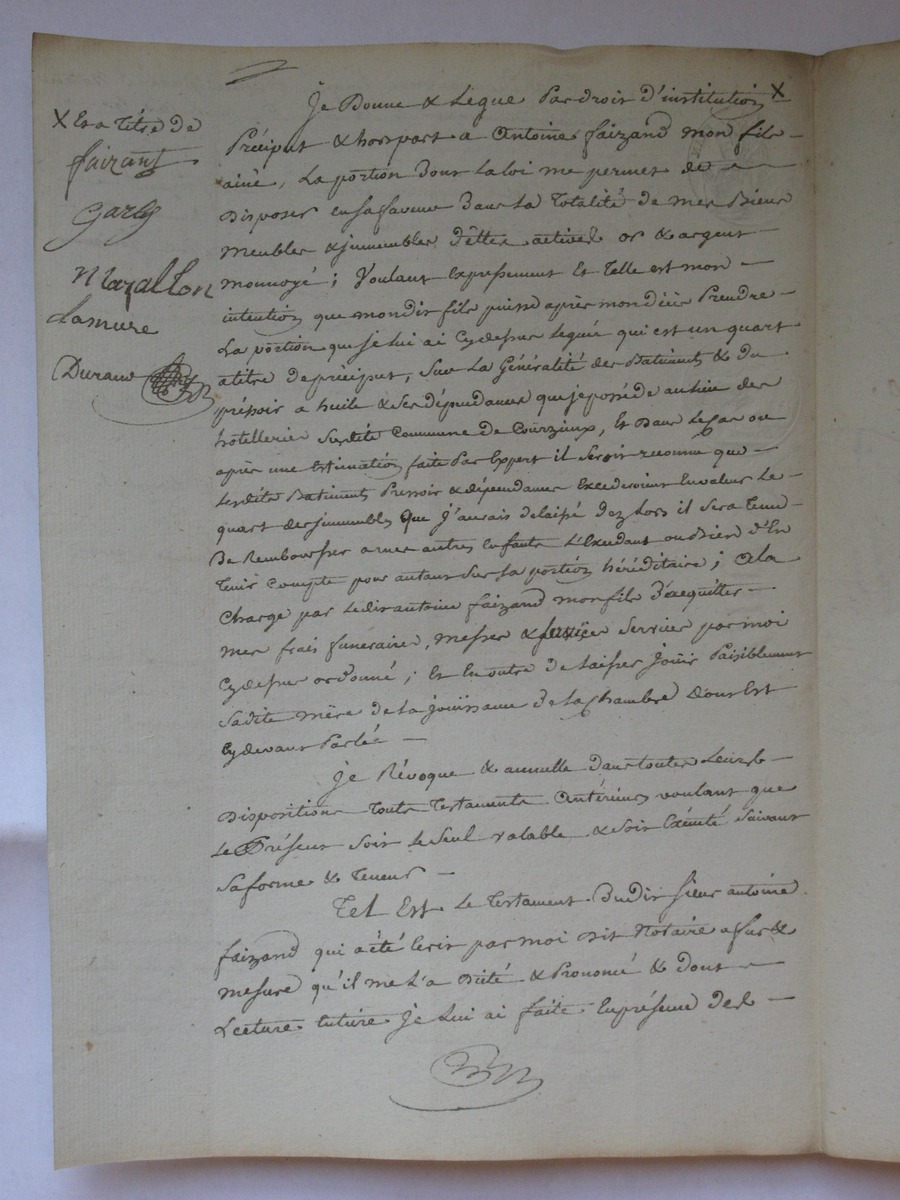 X Et a titre de
faizant
Garly
Mazallon
Lamure
Durand
Je Donne & Legue Par droit d'institution X
Préciput & hors part a Antoine faizand mon fils
ainé, La portion dont La loi me permet de
Disposer en sa faveur Dans La Totalité de mes Biens
meubles & immeubles dettes actives or & argent
monnoyé ; Voulant Expressement Et Telle est mon
intention que mondit fils puisse après mon décès Prendre
La portion que je lui ai Cy dessus Leguée qui est un quart
a titre de préciput, Sur La Généralité des Batiments & du
préssoir a huile & ses dépendances que je possède au lieu des
hotelleries Susdite Commune de Courzieux, Et Dans Le cas ou
après une Estimation faite Par Expert il Seroit reconnu que
Lesdits Batiments Pressoir & dépendances Excederoient En valeur Le
quart des immeubles que j'aurais delaissé dez Lors il Sera Tenu
De Rembourser a mes autres Enfants L'Excedant ou Bien d'En
Tenir Compte pour autant Sur Sa portion héréditaire ; a la
Charge par Ledit antoine faizand mon fils d'acquitter
mes frais funeraires, messes & services par moi
Cy dessus ordonné ; Et En outre de Laisser Jouir Paisiblement
Sadite mère de La jouissance de La Chambre Dont Est
Cy devant Parlé
Je Révoque & annulle dans toutes Leurs
Dispositions Touts Testaments Antérieurs voulant que
Le Présent Soit Le Seul valable & Soit Exécuté Suivant
Sa forme & Teneur
Tel Est Le Testament Dudit sieur antoine
faizand qui a été Ecrit par moi dit Notaire a fur &
mesure qu'il me L'a Dicté & Prononcé & dont
Lecture Entière je Lui ai faite En présence des